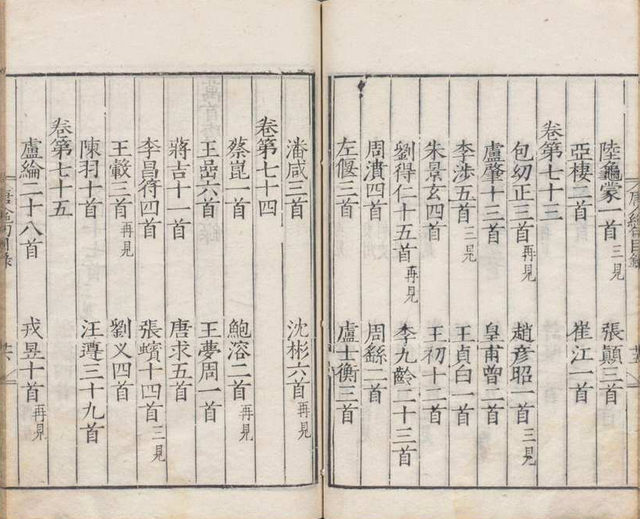 陸龜蒙一首三見 張顛三首
亞棲二首 崔江一首
卷第七十三
包幼正三首再見 趙彥昭一首三見
盧肇十三首 皇甫曾二首
李涉五首三見 王貞白一首
朱景玄四首 王初十二首
劉得仁十五首再見 李九齡二十三首
周濆四首 周繇一首
左偃三首 盧士衡三首
潘咸三首 沈彬六首再見
卷第七十四
蔡崑一首 鮑溶二首再見
王嵒六首 王夢周一首
蔣吉十一首 唐求五首
李昌符四首再見 張蠙十四首三見
王轂三首 劉乂四首
陳羽十首 汪遵三十九首
卷第七十五
盧綸二十八首 戎昱十首再見